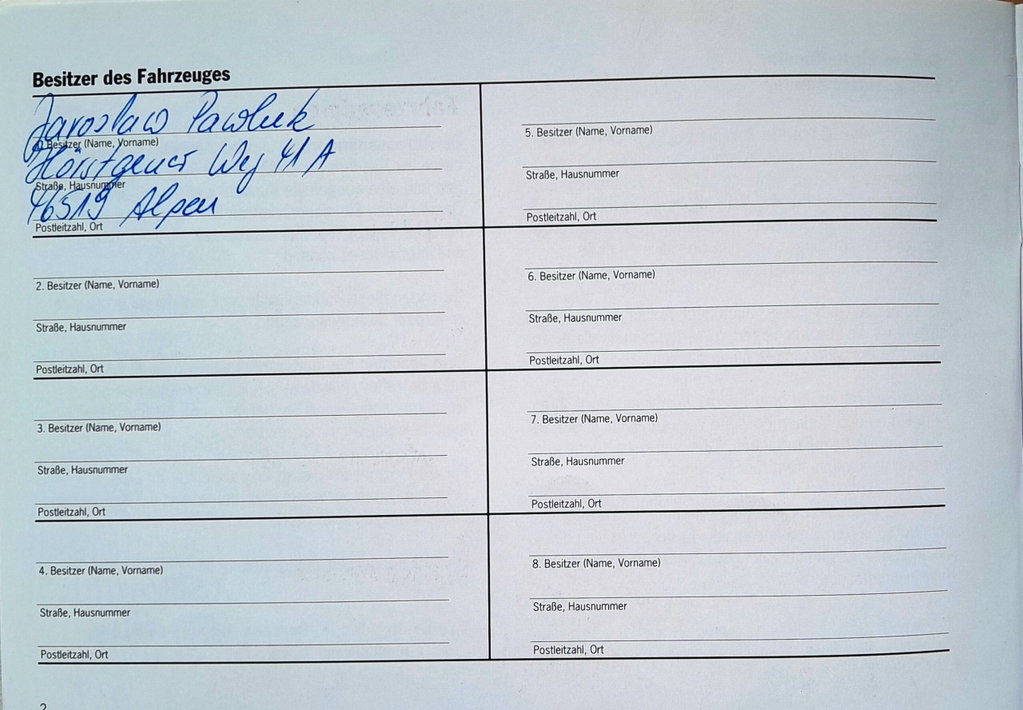 Besitzer des Fahrzeuges
Jaroslaw Pawluk
1. Besitzer (Name, Vorname)
Hörstgener Weg 41 A
Straße, Hausnummer
46519 Alpen
Postleitzahl, Ort
2. Besitzer (Name, Vorname)
Straße, Hausnummer
Postleitzahl, Ort
3. Besitzer (Name, Vorname)
Straße, Hausnummer
Postleitzahl, Ort
4. Besitzer (Name, Vorname)
Straße, Hausnummer
Postleitzahl, Ort
5. Besitzer (Name, Vorname)
Straße, Hausnummer
Postleitzahl, Ort
6. Besitzer (Name, Vorname)
Straße, Hausnummer
Postleitzahl, Ort
7. Besitzer (Name, Vorname)
Straße, Hausnummer
Postleitzahl, Ort
8. Besitzer (Name, Vorname)
Straße, Hausnummer
Postleitzahl, Ort
2